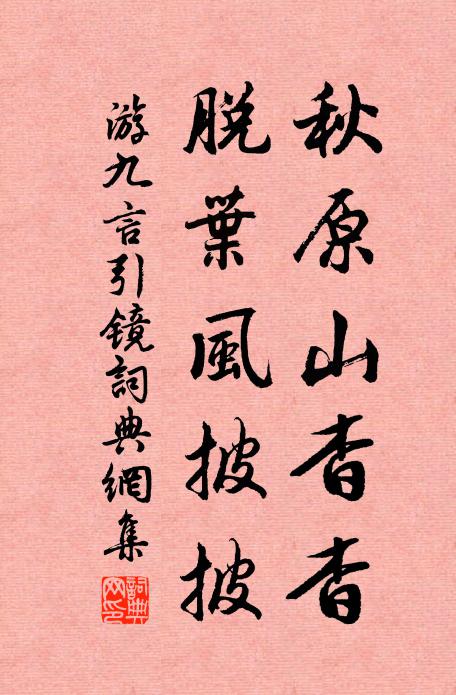 秋原山杳杳
脫葉風披披
游九言引鏡詞典網集
詞典网印